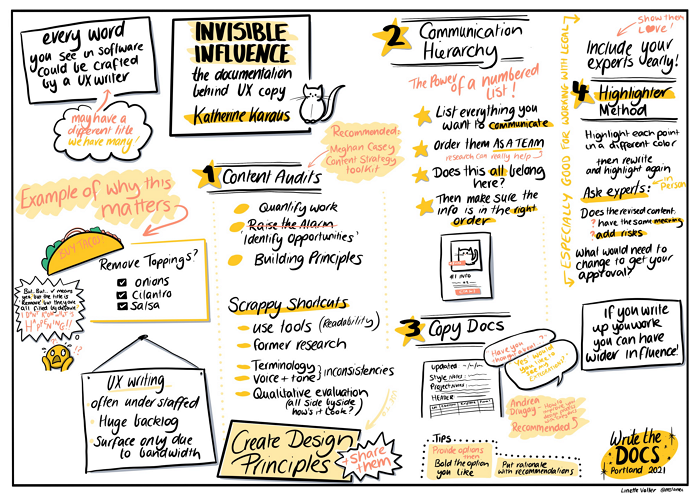 every word
you see in software
could be crafted
by a UX writer
may have a
different title
we have many!
INVISIBLE
INFLUENCE
the documentation
behind UX copy
Katherine Karaus
Example of why this
matters
BUY TACOS
Remove Toppings?
onions
Cilantro
Salsa
But.. But... ✓ means
yes, but the title is
HAPPENING!!
!?
UX writing
often understaffed
Huge backlog
Surface only due
to bandwidth
1 Content Audits
Recommended:
Meghan Casey
Content Strategy
toolkit
Quantify work
Raise the Alarm
'Identify Opportunities'
Building Principles
Scrappy Shortcuts
use tools (Readability)
former research
Terminology
voice + tone } inconsistencies
Qualitative evaluation
(all side by side
how's it look?)
Create Design
Principles
+ share
them
2 Communication
Hierarchy
The Power of a numbered
list!
List everything you
want to communicate
Order them AS A TEAM
research can really help
Does this all belong
here?
Then make sure the
info is in the right
order
#1 INFO
3 Copy Docs
updated -/-/--
Style notes:
Project notes:
HEADER
Have you
thought about..?
Yes would
you like to
see my
Recommended
Tips
Provide options
then
Bold the option
you like
Put rationale
with recommendations
ESPECIALLY GOOD FOR WORKING WITH LEGAL
show then
L♥ve!
Include your
experts yearly!
4 Highlighter
Method
Highlight each point
in a different color
then rewrite
and highlight again
Ask experts: in
Person
Does the revised content:
? have the same meaning
? add risks
What would need to
change to get your
approval?
If you write
up your work
you can have
wider influence!
Write the
DOCS
Portland 2021
Linette Voller